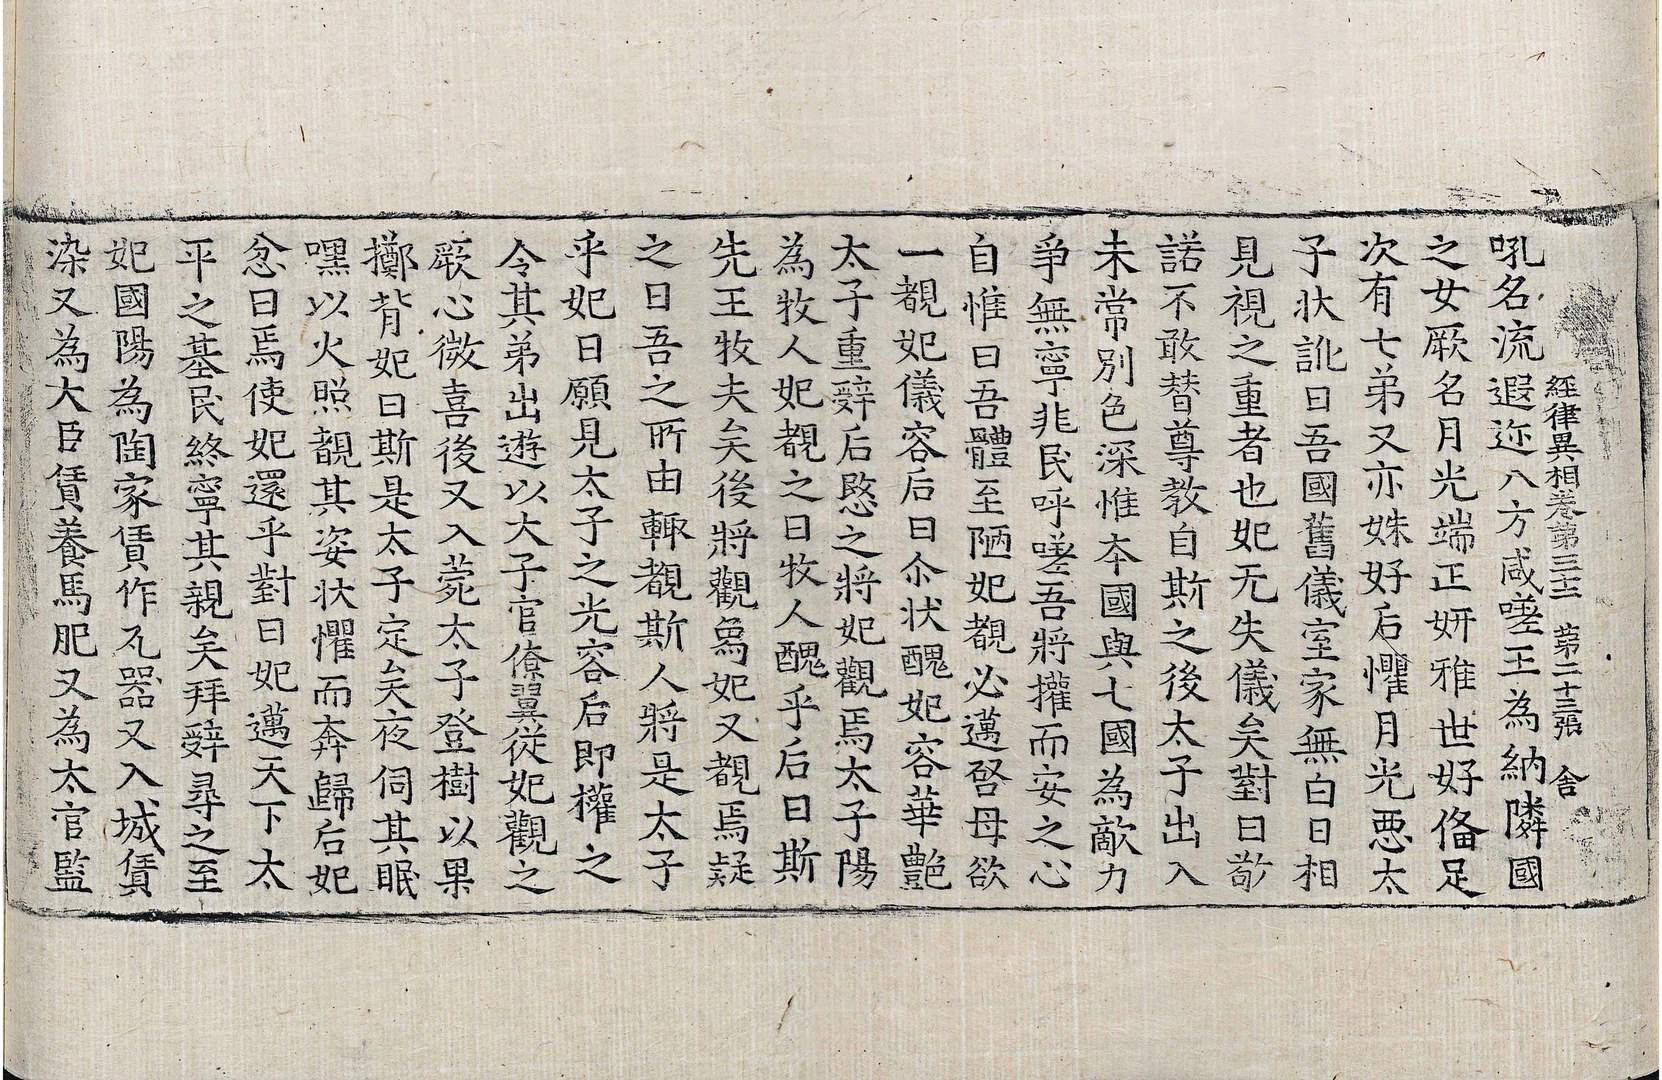 經律異相卷第三十二　第二十三張　舍
吼名流遐迩八方咸嗟王為納隣國
之女厥名月光端正妍雅世好俻足
次有七弟又亦姝好后懼月光惡太
子状訛曰吾國舊儀室家無白日相
見視之重者也妃无失儀矣對曰敬
諾不敢替尊教自斯之後太子出入
未常別色深惟本國與七國為敵力
爭無寧非民呼嗟吾將攉而安之心
自惟曰吾體至陋妃覩必邁啓母欲
一覩妃儀容后曰尒状醜妃容華艶
太子重辭后愍之將妃觀焉太子陽
為牧人妃覩之曰牧人醜乎后曰斯
先王牧夫矣後將觀象妃又覩焉疑
之曰吾之所由輙覩斯人將是太子
乎妃曰願見太子之光容后即攉之
令其弟出遊以大子官僚翼従妃觀之
厥心微喜後又入菀太子登樹以果
擲背妃曰斯是太子定矣夜伺其眠
嘿以火照覩其姿状懼而奔歸后妃
忿曰焉使妃還乎對曰妃邁天下太
平之基民終寧其親矣拜辭尋之至
妃國陽為陶家賃作瓦器又入城賃
染又為大臣賃養馬肥又為太官監